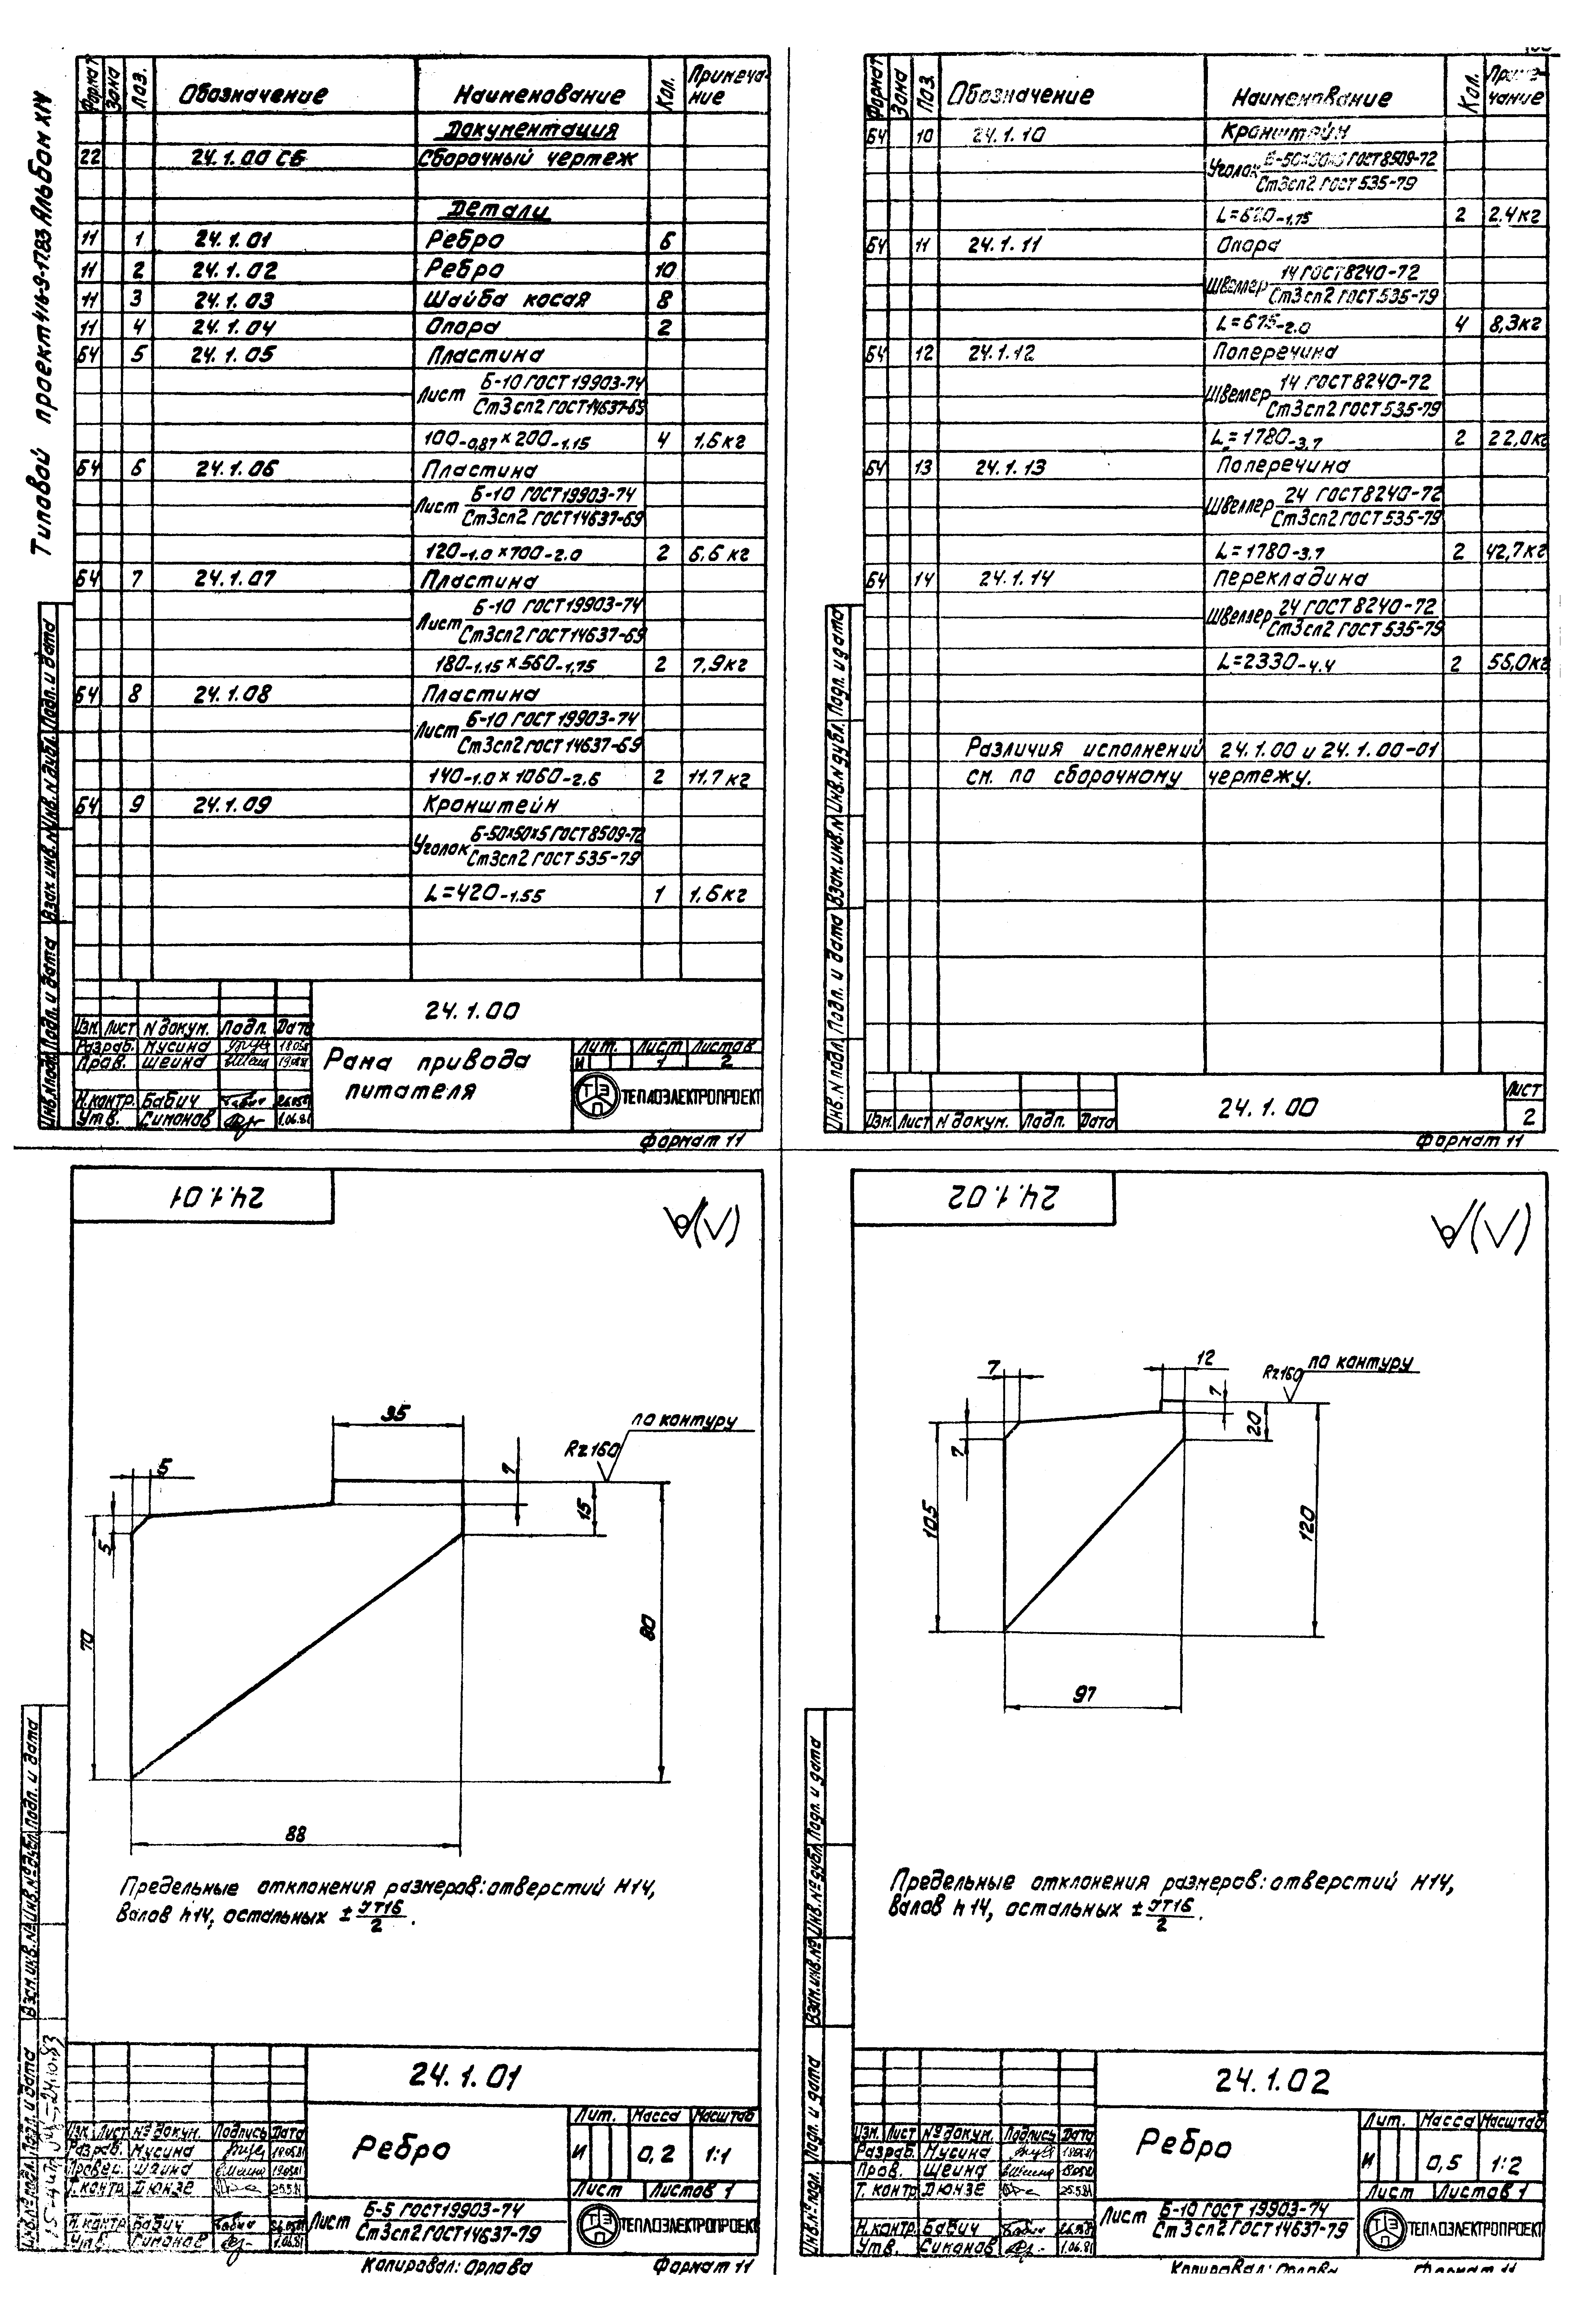 Типовой проект 416-9-17.83 Альбом XIV
Формат Зона Поз. Обозначение Наименование Кол. Примеча-
ние
Документация
22 24.1.00 СБ Сборочный чертеж
Детали
11 1 24.1.01 Ребро 6
11 2 24.1.02 Ребро 10
11 3 24.1.03 Шайба косая 8
11 4 24.1.04 Опора 2
БЧ 5 24.1.05 Пластина
Лист Б-10 ГОСТ 19903-74
Ст3сп2 ГОСТ 14637-69
100-0,87 × 200-1.15 4 1,6кг
БЧ 6 24.1.06 Пластина
Лист Б-10 ГОСТ 19903-74
Ст3сп2 ГОСТ 14637-69
120-1.0 × 700-2.0 2 6,6 кг
БЧ 7 24.1.07 Пластина
Лист Б-10 ГОСТ 19903-74
Ст3сп2 ГОСТ 14637-69
180-1.15 × 560-1,75 2 7,9кг
БЧ 8 24.1.08 Пластина
Лист Б-10 ГОСТ 19903-74
Ст3сп2 ГОСТ 14637-69
140-1.0 × 1060-2.6 2 11,7 кг
БЧ 9 24.1.09 Кронштейн
Уголок Б-50×50×5 ГОСТ 8509-72
Ст3сп2 ГОСТ 535-79
L=420-1.55 1 1,6кг
24.1.00
Изм. Лист N докум. Подп. Дата
Разраб. Мусина
Пров. Шеина
Н.контр. Бабич
Утв. Симонов 1.06.81
Рама привода
питателя
Лит. Лист Листов
И 1 2
ТЭП ТЕПЛОЭЛЕКТРОПРОЕКТ
Формат 11
Инв.N подл. Подп. и дата Взам.инв.N Инв.N дубл. Подп. и дата
Формат Зона Поз. Обозначение Наименование Кол. Приме-
чание
БЧ 10 24.1.10 Кронштейн
Уголок Б-50×50×5 ГОСТ 8509-72
Ст3сп2 ГОСТ 535-79
L=620-1,75 2 2.4кг
БЧ 11 24.1.11 Опора
Швеллер 14 ГОСТ 8240-72
Ст3сп2 ГОСТ 535-79
L=675-2.0 4 8,3кг
БЧ 12 24.1.12 Поперечина
Швеллер 14 ГОСТ 8240-72
Ст3сп2 ГОСТ 535-79
L=1780-3.7 2 22,0кг
БЧ 13 24.1.13 Поперечина
Швеллер 24 ГОСТ 8240-72
Ст3сп2 ГОСТ 535-79
L=1780-3.7 2 42,7кг
БЧ 14 24.1.14 Перекладина
Швеллер 24 ГОСТ 8240-72
Ст3сп2 ГОСТ 535-79
L=2330-4.4 2 56,0кг
Различия исполнений 24.1.00 и 24.1.00-01
см. по сборочному чертежу.
Изм. Лист N докум. Подп. Дата
24.1.00
Лист
2
Формат 11
Инв.N подл. Подп. и дата Взам.инв.N Инв.N дубл. Подп. и дата
24.1.01
(√)
35
по контуру
Rz160
5
7
15
5
70
80
88
Предельные отклонения размеров: отверстий H14,
валов h14, остальных ± JT16/2.
24.1.01
Изм. Лист № докум. Подпись Дата
Разраб. Мусина
Провер. Шеина
Т. контр. Дюнзе 25.5.81
Н. контр. Бабич
Утв. Симонов 1.06.81
Ребро
Лит. Масса Масштаб
И 0,2 1:1
Лист Листов 1
Лист Б-5 ГОСТ 19903-74
Ст3сп2 ГОСТ 14637-79
ТЭП ТЕПЛОЭЛЕКТРОПРОЕКТ
Копировал: Орлова Формат 11
Инв.№ подл. Подп. и дата Взам.инв.№ Инв.№ дубл. Подп. и дата
24.1.02
(√)
7
12
по контуру
Rz160
7
20
7
105
120
97
Предельные отклонения размеров: отверстий H14,
валов h14, остальных ± JT16/2.
24.1.02
Изм. Лист № докум. Подпись Дата
Разраб. Мусина
Пров. Шеина
Т. контр. Дюнзе 25.5.81
Н.контр. Бабич
Утв. Симонов 1.06.81
Ребро
Лит. Масса Масштаб
И 0,5 1:2
Лист Листов 1
Лист Б-10 ГОСТ 19903-74
Ст3сп2 ГОСТ 14637-79
ТЭП ТЕПЛОЭЛЕКТРОПРОЕКТ
Копировал: Орлова Формат 11
Инв.№ подл. Подп. и дата Взам.инв.№ Инв.№ дубл. Подп. и дата